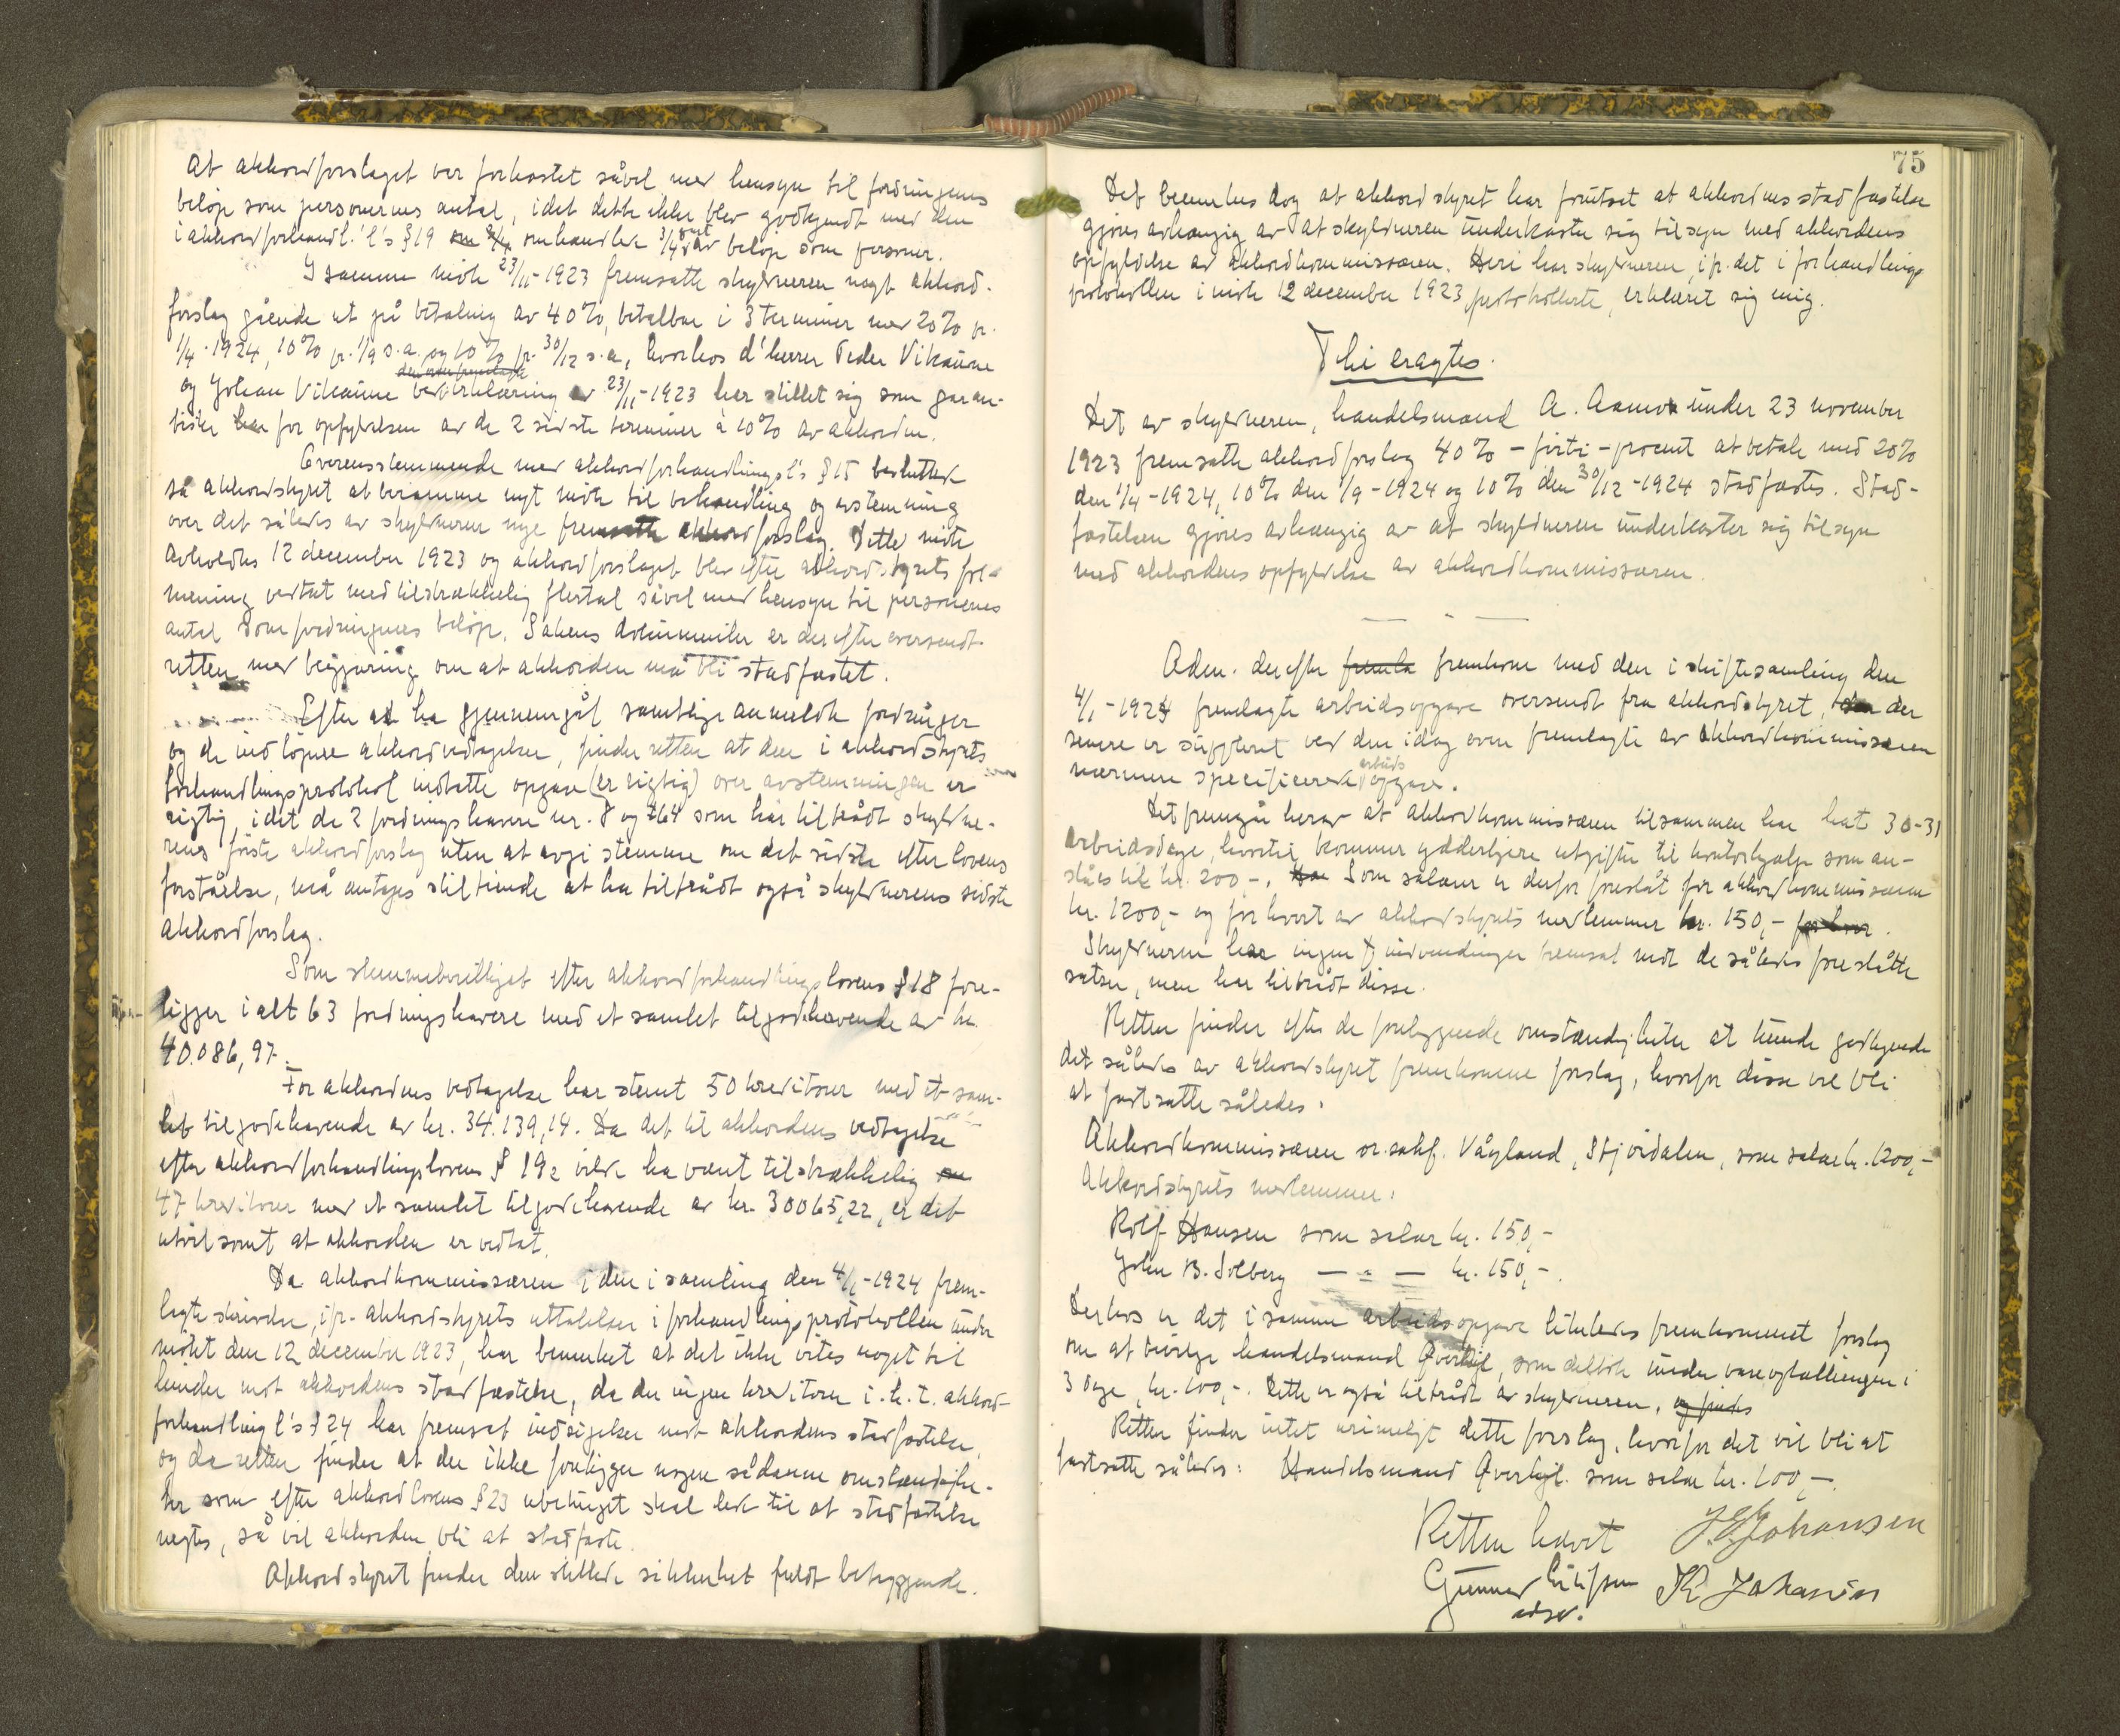 at akkordforslaget var forkastet såvel med hensyn til fordringenes
beløp som personernes antal, idet dette ikke blev godkjendt med den
i akkordforhandl.'l's § 19 omhandlede 3/4 av beløp som personer.
I samme møte 23/11-1923 fremsatte skyldneren nyt akkord-
forslag gående ut på betaling av 40%, betalbar i 3 terminer med 20% pr.
1/4-1924, 10% pr. 1/9 s.a. og 10% pr. 30/12 s.a., hvorhos d'herrer Peder Vikaune
og Johan Vikaune ved erklæring av 23/11-1923 har stillet sig som garan-
tister for opfyldelsen av de 2 sidste terminer à 10% av akkorden.
Overensstemmende med akkordforhandlingsl's § 15 besluttede
så akkordstyret at beramme nyt møte til behandling og avstemning
over det således av skyldneren nye fremsatte akkordforslag. Dette møte
avholdtes 12 december 1923 og akkordforslaget blev efter akkordstyrets for-
mening vedtat med tilstrækkelig flertal såvel med hensyn til personenes
antal som fordringenes beløp. Sakens dokumenter er derefter oversendt
retten med begjæring om at akkorden må bli stadfæstet.
Efter at ha gjennemgåt samtlige anmeldte fordringer
og de indløpne akkordvedtagelser, finder retten at den i akkordstyrets
forhandlingsprotokol indtatte opgave (er rigtig) over avstemningen er
rigtig, idet de 2 fordringshavere nr. 8 og 64 som har tiltrådt skyldne-
rens første akkordforslag uten at avgi stemme om det sidste efter lovens
forståelse, må antages stiltiende at ha tiltrådt også skyldnerens sidste
akkordforslag.
Som stemmeberettiget efter akkordforhandlingslovens § 18 fore-
ligger i alt 63 fordringshavere med et samlet tilgodehavende av kr.
40.086,97.
For akkordens vedtagelse har stemt 50 kreditorer med et sam-
let tilgodehavende av kr. 34.139,14. Da det til akkordens vedtagelse
efter akkordforhandlingslovens § 19 2 vilde ha været tilstrækkelig
47 kreditorer med et samlet tilgodehavende av kr. 30065,22, er det
utvilsomt at akkorden er vedtat.
Da akkordkommissæren i den i samling den 4/1-1924 frem-
lagte skrivelse, jfr. akkordstyrets uttalelser i forhandlingsprotokollen under
møtet den 12 december 1923, har bemerket at det ikke vites noget til
hinder mot akkordens stadfæstelse, da der ingen kreditorer i. h. t. akkord-
forhandlingl's § 24 har fremsat indsigelser mot akkordens stadfæstelse,
og da retten finder at der ikke foreligger nogen sådanne omstændighe-
ter som efter akkordlovens § 23 ubetinget skal lede til at stadfæstelse
negtes, så vil akkorden bli at stadfæste.
Akkordstyret finder den stillede sikkerhet fuldt betryggende.
75
Det bemerkes dog at akkordstyret har forutsat at akkordens stadfæstelse
gjøres avhængig av at skyldneren underkaster sig tilsyn med akkordens
opfyldelse av akkordkommissæren. Heri har skyldneren, jfr. det i forhandlings-
protokollen i møte 12 december 1923 protokollerte, erklæret sig enig.
Thi eragtes.
Det av skyldneren, handelsmand A. Aamot under 23 november
1923 fremsatte akkordforslag 40% - førti - procent at betale med 20%
den 1/4-1924, 10% den 1/9-1924 og 10% den 30/12-1924 stadfæstes. Stad-
fæstelsen gjøres avhængig av at skyldneren underkaster sig tilsyn
med akkordens opfyldelse av akkordkommissæren.
Adm. derefter fremkom med den i skiftesamling den
4/1-1924 fremlagte arbeidsopgave oversendt fra akkordstyret, der
senere er suppleret ved den idag oven fremlagte av akkordkommissæren
nærmere specificerede arbeids opgave.
Det fremgår herav at akkordkommissæren tilsammen har hat 30-31
arbeidsdage, hvortil kommer ydderligere utgifter til kontorhjælp som an-
slåes til kr. 200,-. Som salær er derfor foreslåt for akkordkommissæren
kr. 1200,- og for hvert av akkordstyrets medlemmer kr. 150,-.
Skyldneren har ingen indvendinger fremsat mot de således foreslåtte
satser, men har tiltrådt disse.
Retten finder efter de foreliggende omstændigheter at kunde godkjende
det således av akkordstyret fremkomne forslag, hvorfor disse vil bli
at fastsætte således:
Akkordkommissæren or. sakf. Vågland, Stjørdalen, som salær kr. 1200,-
Akkordstyrets medlemmer:
Rolf Hansen som salær kr. 150,-
John B. Solberg — " — kr. 150,-.
Derhos er det i samme arbeidsopgave likeledes fremkommet forslag
om at bevilge handelsmand Øverkil, som deltok under vareoptællingen i
3 dage, kr. 100,-. Dette er også tiltrådt av skyldneren.
Retten finder intet urimeligt dette forslag, hvorfor det vil bli at
fastsætte således: Handelsmand Øverkil som salær kr. 100,-.
Retten hævet
J. Johansen
Gunnar
K Johansen